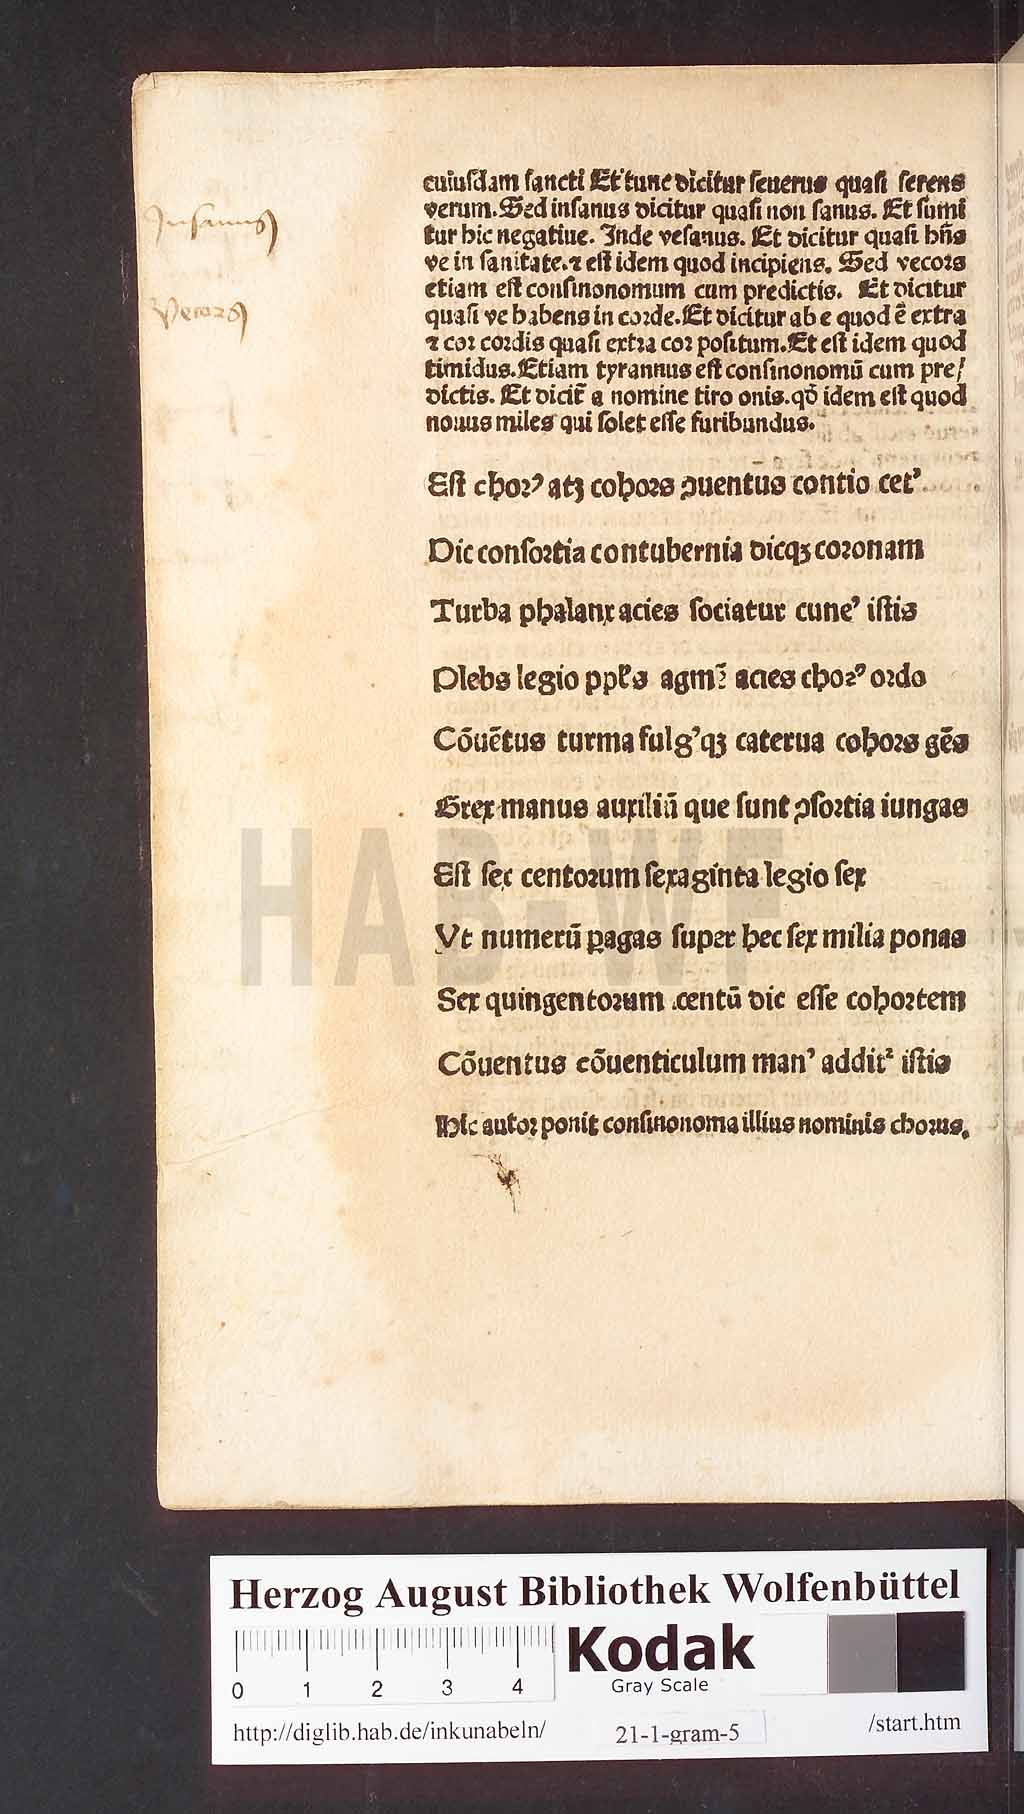 cuiusdam sancti Et tunc dicitur seuerus quasi serens
verum. Sed insanus dicitur quasi non sanus. Et sumi
tur hic negatiue. Inde vesanus. Et dicitur quasi hñs
ve in sanitate. ⁊ est idem quod incipiens. Sed vecors
etiam est consinonomum cum predictis. Et dicitur
quasi ve habens in corde. Et dicitur ab e quod ē extra
⁊ cor cordis quasi extra cor positum. Et est idem quod
timidus. Etiam tyrannus est consinonomū cum pre/
dictis. Et dicit̃ a nomine tiro onis. qđ idem est quod
nouus miles qui solet esse furibundus.
Insanus
Vecors
Est chorꝰ atqꝫ cohors ꝯuentus contio cetꝰ
Dic consortia contubernia dicqꝫ coronam
Turba phalanx acies sociatur cuneꝰ istis
Plebs legio ppľs agmẽ acies chorꝰ ordo
Cōuētus turma fulgꝰqꝫ caterua cohors gēs
Grex manus auxiliū que sunt ꝯsortia iungas
Est sex centorum sexaginta legio sex
Vt numerū ꝑagas super hec sex milia ponas
Sex quingentorum centū dic esse cohortem
Cōuentus cōuenticulum manꝰ addit᷑ istis
Hic autor ponit consinonoma illius nominis chorus.
HAB-WF
Herzog August Bibliothek Wolfenbüttel
0 1 2 3 4
Kodak
Gray Scale
http://diglib.hab.de/inkunabeln/ 21-1-gram-5 /start.htm